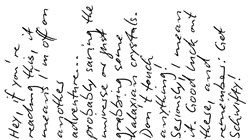 Hey, if you're
reading this, it
means i'm off on
another
adventure...
probably saving the
universe or just
grabbing some
Galaxian crystals.
Don't touch
anything!
Seriously, i mean
it. Good luck out
there, and
remember: Get